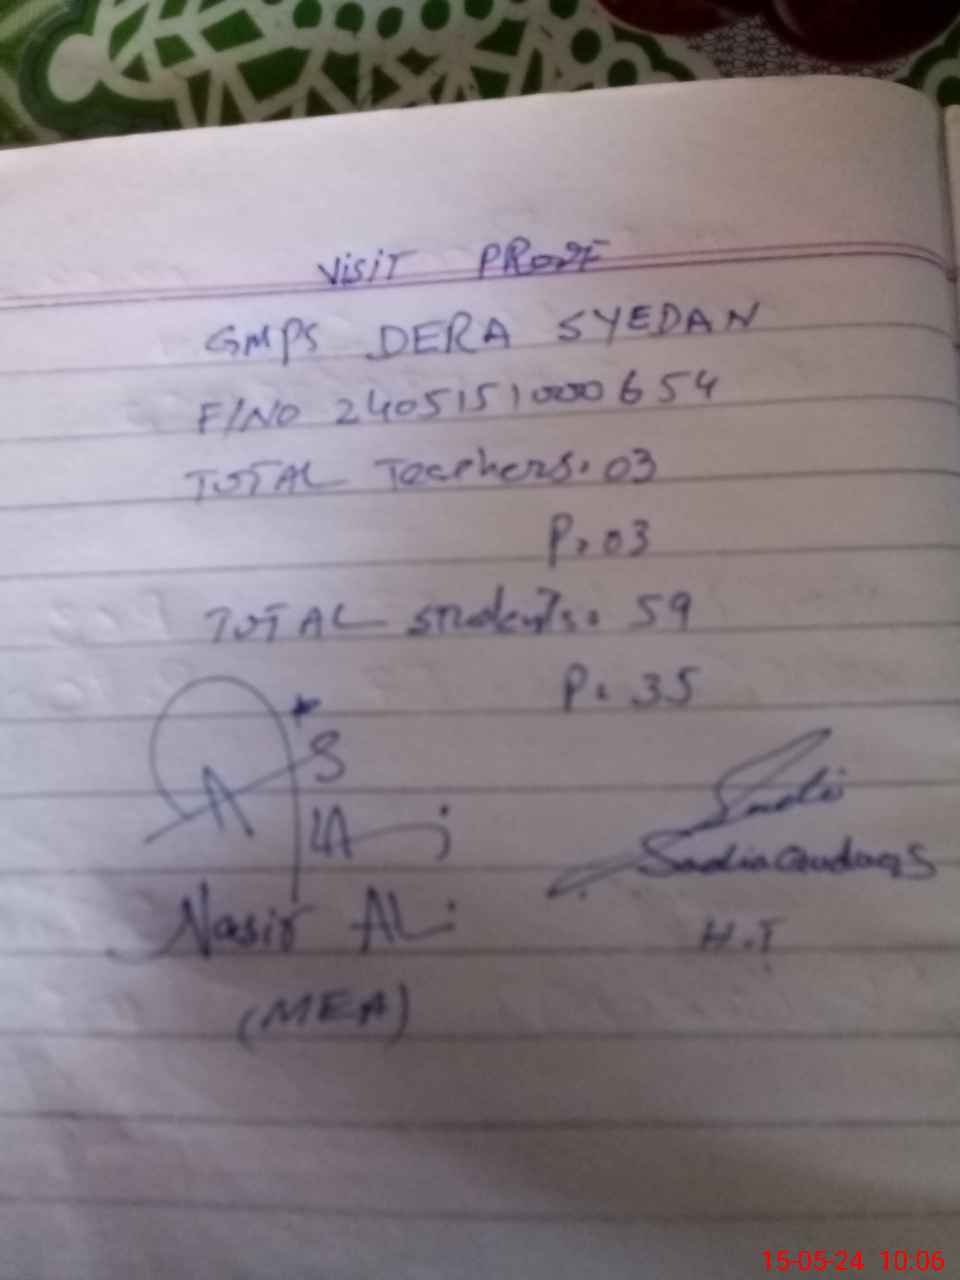 VISIT PROOF
GMPS DERA SYEDAN
F/NO 2405151000654
TOTAL Teachers: 03
P: 03
TOTAL Students: 59
P: 35
Nasir ALi
(MEA)
Sadia
H.T
15-05-24 10:06